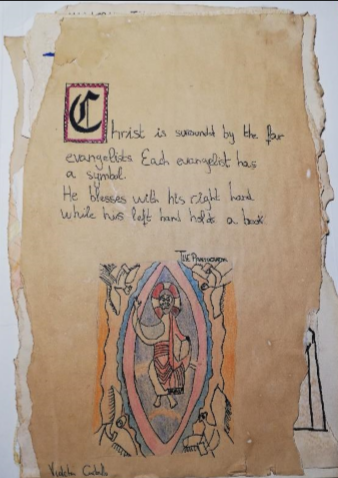 Christ is surround by the four
evangelists Each evangelist has
a symbol.
He blesses with his right hand
while his left hand holds a book.
The Pantocrator